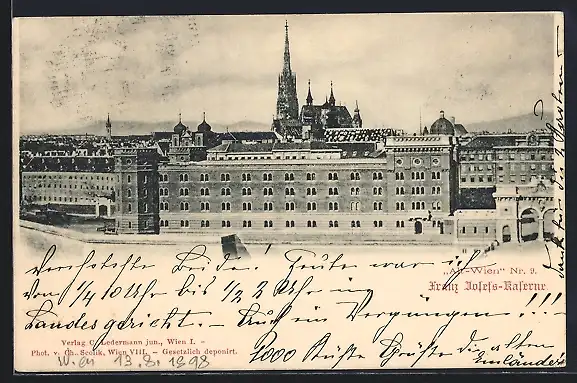 „Alt-Wien" Nr. 9.
Franz Josefs-Kaserne
Verehrteste Beide! Heute war ich
von ¼ 10 Uhr bis ½ 2 Uhr im
Landesgericht. – Auch ein Vergnügen!!!
1000 Küsse Grüße die alten
Verlag C. Ledermann jun., Wien I. –
Phot. v. Ch. Scolik, Wien VIII. – Gesetzlich deponirt.
Wien 13. 8. 1898